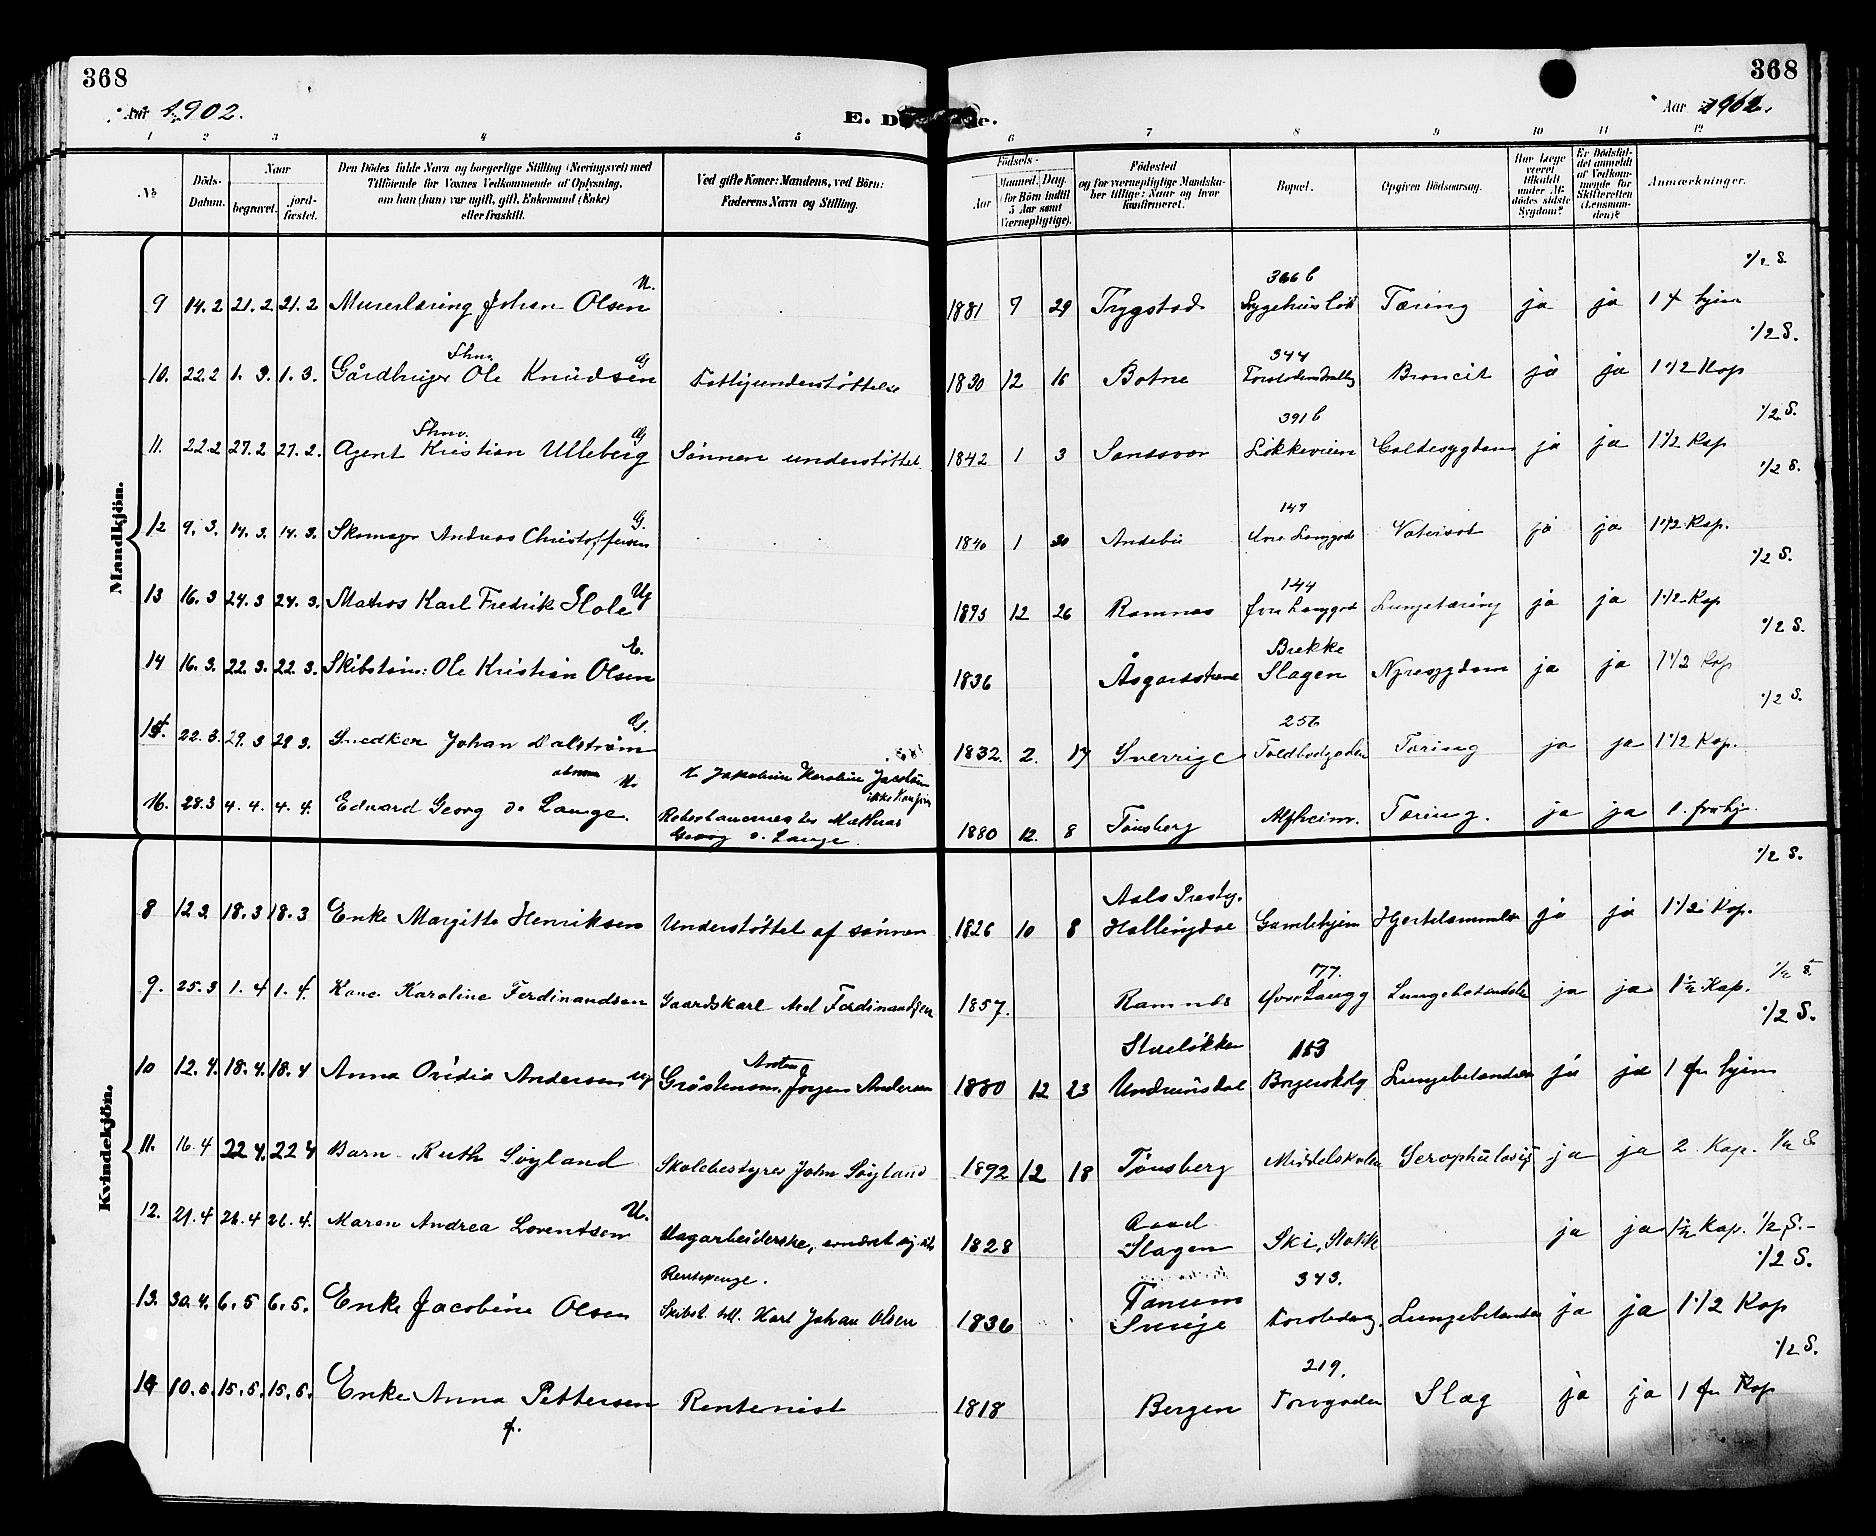 368
368
Aar 1902.
E. D
Aar 1902.
1 2 3 4 5 6 7 8 9 10 11 12
No
Döds-Datum.
Naar
begravet.
jordfæstet.
Den Dödes fulde Navn og borgerlige Stilling (Næringsvei) med
Tilföiende for Voxnes Vedkommende af Oplysning,
om han (hun) var ugift, gift, Enkemand (Enke)
eller fraskilt.
Ved gifte Koner: Mandens, ved Börn:
Faderens Navn og Stilling.
Födsels-
Aar
Maaned. Dag.
(for Börn indtil
5 Aar samt
Værnepligtige).
Födested
og for værnepligtige Mandska-
ber tillige: Naar og hvor
konfirmeret.
Bopæl.
Opgiven Dödsaarsag.
Har Læge
været
tilkaldt
under Af-
dödes sidste
Sygdom?
Er Dödsfal-
det anmeldt
af Vedkom-
mende for
Skifteretten
(Lensman-
den)?
Anmærkninger.
Mandkjön.
9 14.2 21.2 21.2 Murerlæring Johan Olsen U. 1881 7 29 Trygstad 366 b Sygehusløk Tæring ja ja 1 f hjem 1/2 S.
10. 22.2 1.3. 1.3. Gårdbruger Ole Knudsen G 1830 12 16 Botne 344 Broncit ja ja 1 1/2 Kap 1/2 S.
11. 22.2 27.2 27.2. Agent Kristian Ulleberg G Sønnen understøttet 1842 1 3 Sandsvær 391 b Løkkeveien ja ja 1 1/2 Kap 1/2 S.
12 9.3. 14.3. 14.3. Skomager Andreas Christoffersen G. 1840 1 30 Andebu 149 Vatersot ja ja 1 1/2 Kap. 1/2 S.
13 16.3 24.3 24.3. Matros Karl Fredrik Hole Ug 1873 12 26 Ramnæs 144 Øvre Langgade Lungetæring ja ja 1 1/2 Kap 1/2 S.
14 16.3. 22.3. 22.3. Skibstøm: Ole Kristian Olsen E. 1836 Åsgaardstrand Brekke Slagen Nyresygdom ja ja 1 1/2 Kap 1/2 S.
15. 22.3. 29.3 29.3. Snedker Johan Dalstrøm G. 1832. 2. 17 Sverrige 256 Toldbodgaden Tæring ja ja 1 1/2 Kap. 1/2 S.
16. 28.3 4.4. 4.4. Edvard Georg de Lange. U. Jakobine Karoline Jacobsen
Mathias
Georg d. Lange. 1880 12. 8 Tønsberg Alfheim. Tæring. ja ja 1. fra hj.
Kvindekjön.
8 12.3. 18.3 18.3 Enke Margitte Henriksen Understøttet af sønnen 1826 10 8 Aals Prestg. Hallingdal Gamlehjem ja ja 1 1/2 Kap. 1/2 S.
9. 25.3 1.4 1.4. Kone Karoline Ferdinandsen Gaardskarl Axel Ferdinandsen 1857. Ramnes 177. Øvre Langg Lungebetændelse ja ja 1 1/2 Kap. 1/2 S.
10 12.4. 18.4. 18.4 Anna Ovidia Andersen Ug Anton Jørgen Andersen 1880 12 23 Undrumsdal 153 Lungebetændelse ja ja 1 fr hjem 1/2 S.
11. 16.4 22.4. 22.4 Barn Ruth Søyland Skolebestyrer John Søyland 1892 12 18 Tønsberg Middelskolen ja ja 2 Kap. 1/2 S
12. 21.4 26.4 26.4. Maren Andrea Lorentsen U. Dagarbeiderske, 1828 Slagen ja ja 1 1/2 Kap. 1/2 S.
13. 30.4. 6.5 6.5. Enke Jacobine Olsen Rentepenge. Skibst. Karl Johan Olsen 1836 Tanum Sverige 343. Lungebetændelse ja ja 1 1/2 Kap 1/2 S.
14 10.5. 15.5. 15.5. Enke Anna Pettersen
f. Rentenist 1818 Bergen 219. Torvgaden Slag ja ja 1 fr Kap 1/2 S.